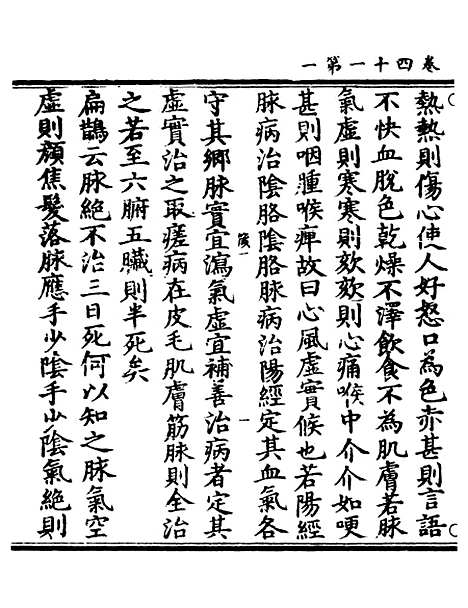 卷四十一第一
熱熱則傷心使人好怒口為色赤甚則言語
不快血脫色乾燥不澤飲食不為肌膚若脉
氣虛則寒寒則欬欬則心痛喉中介介如哽
甚則咽腫喉痺故曰心風虛實候也若陽經
脉病治陰胳陰胳脉病治陽經定其血氣各
守其鄉脉實宜瀉氣虛宜補善治病者定其
虛實治之取瘥病在皮毛肌膚筋脉則全治
之若至六腑五臟則半死矣
扁鵲云脉絕不治三日死何以知之脉氣空
虛則顏焦髮落脉應手少陰手少陰氣絕則